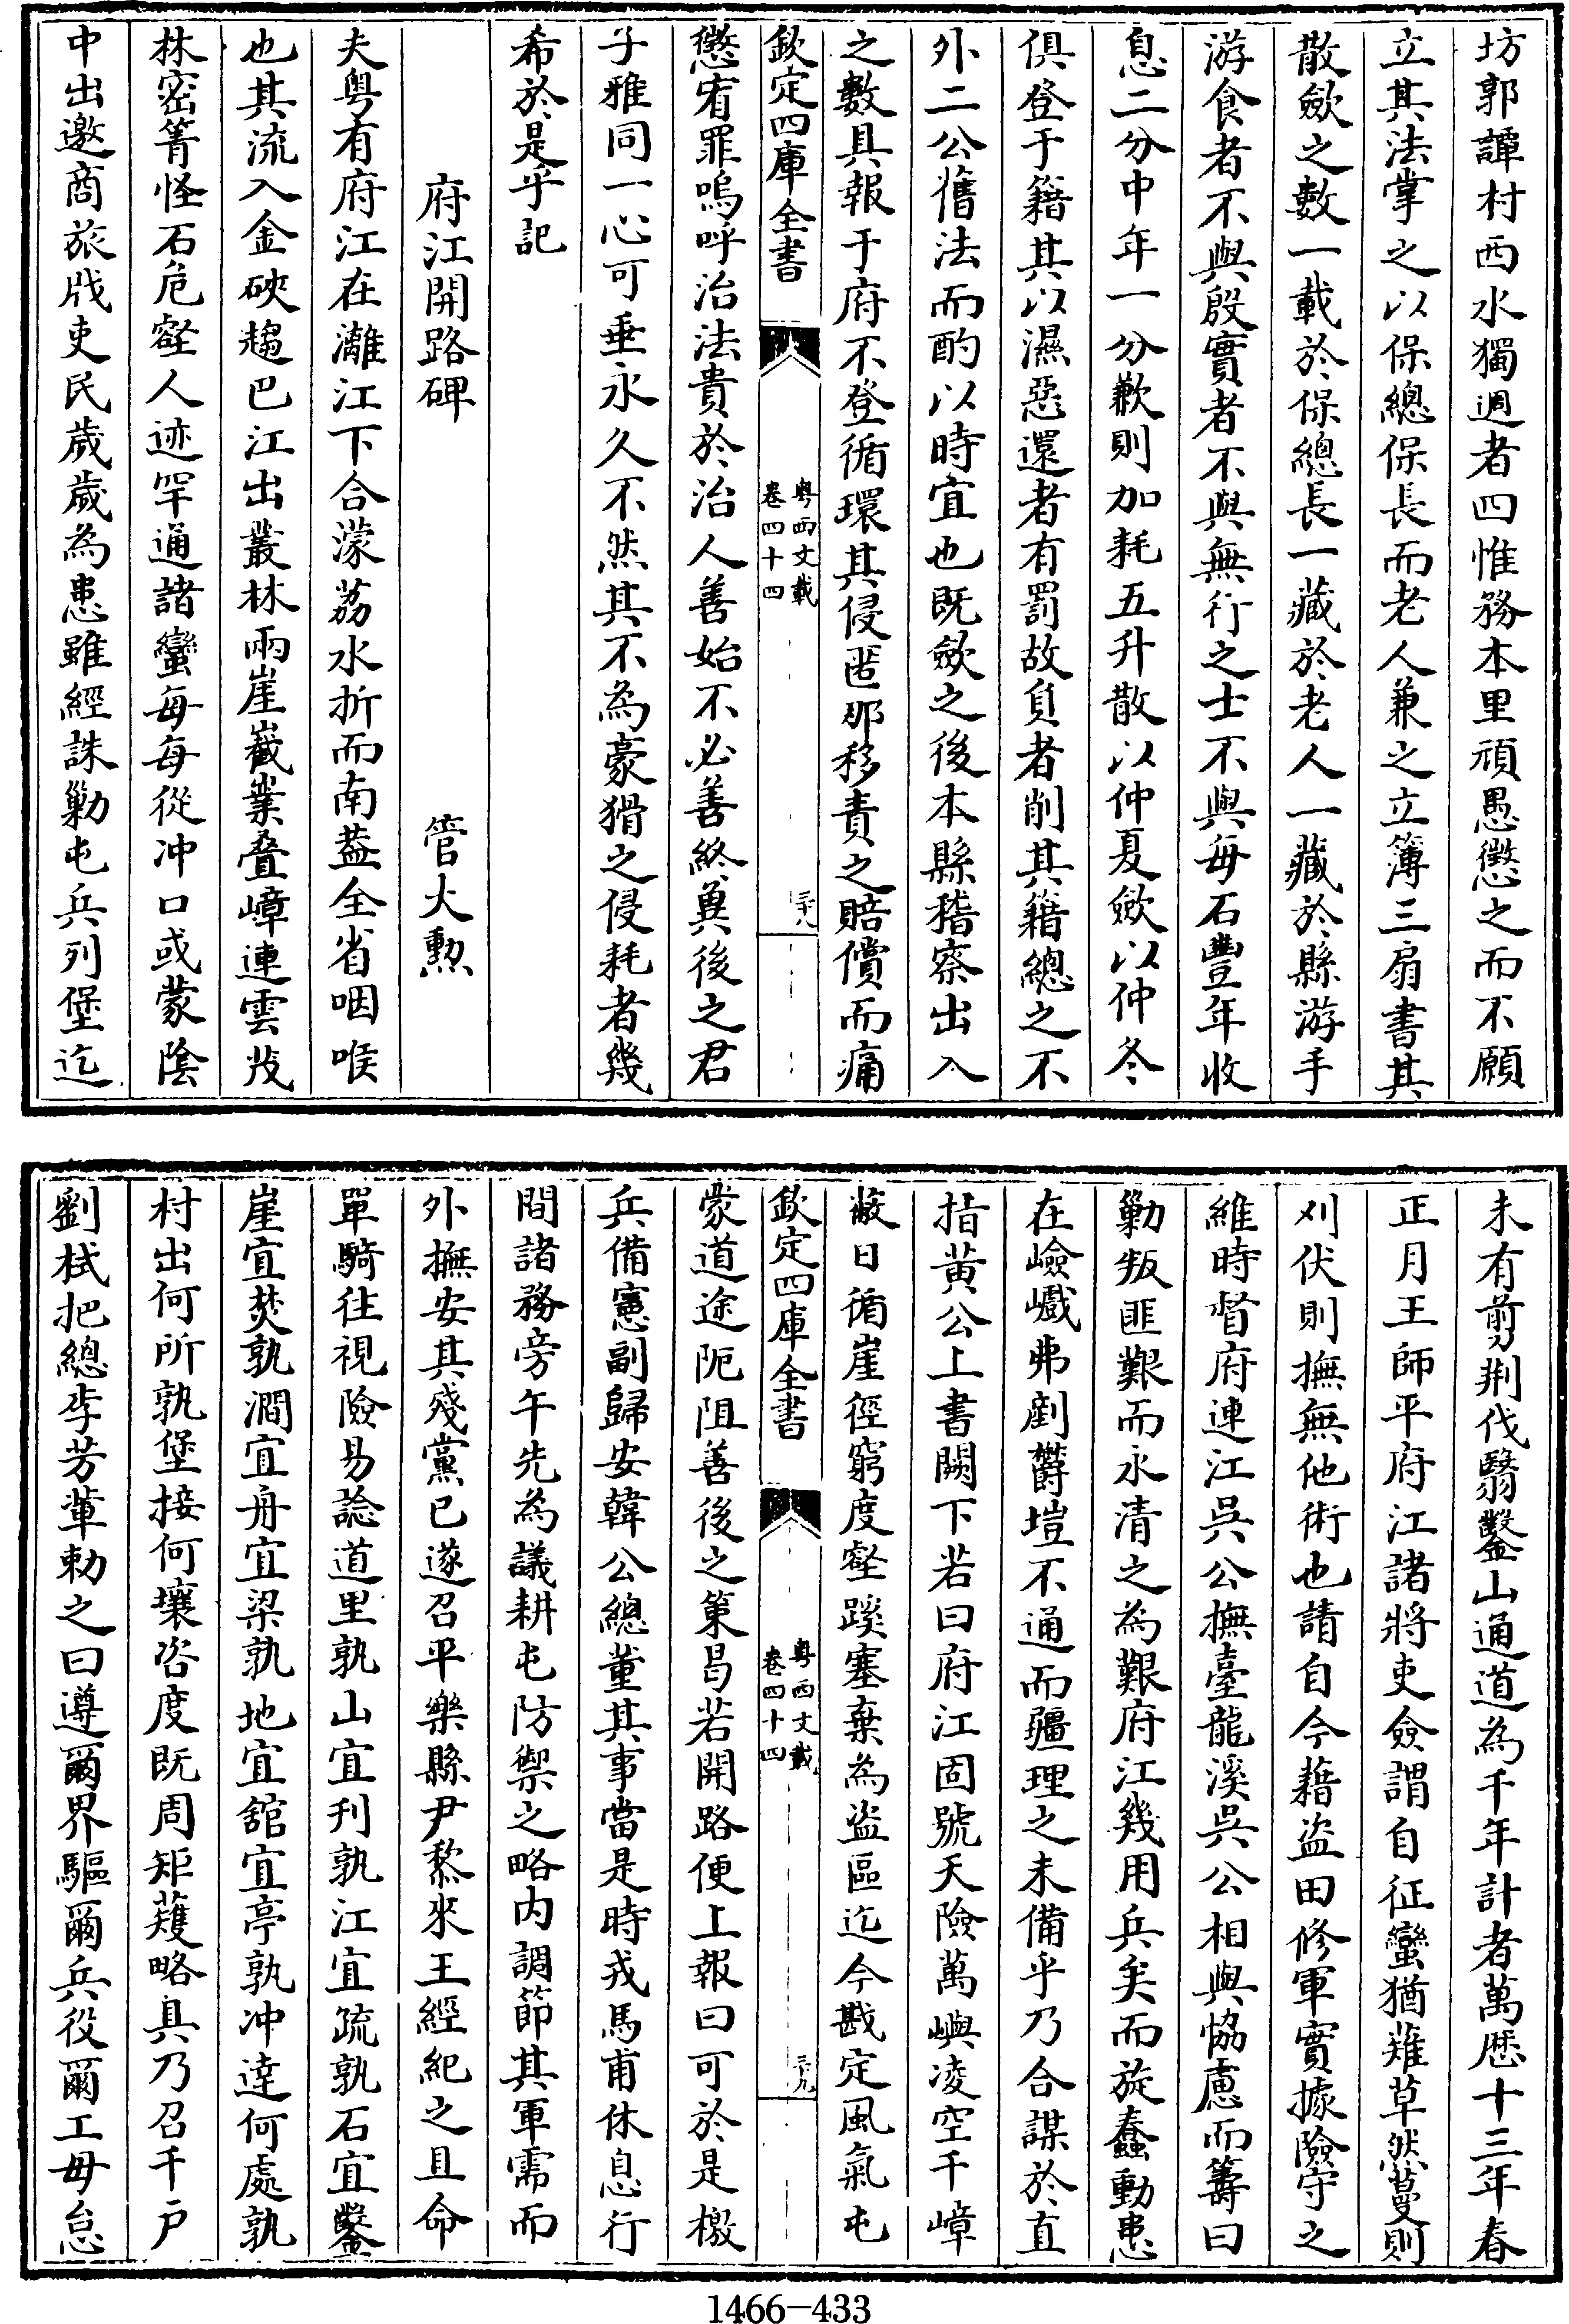 坊郭譚村西水獨週者四惟務本里頑愚懲之而不願
立其法掌之以保總保長而老人兼之立簿三扇書其
散歛之數一載於保總長一藏於老人一藏於縣游手
游食者不與殷實者不與無行之士不與每石豐年收
息二分中年一分歉則加耗五升散以仲夏歛以仲冬
俱登于籍其以濕惡還者有罰故負者削其籍總之不
外二公舊法而酌以時宜也既歛之後本縣稽察出入
之數具報于府不登循環其侵匿那移責之賠償而痛
欽定四庫全書
粤西文載
卷四十四
三十八
懲宥罪嗚呼治法貴於治人善始不必善終兾後之君
子雅同一心可垂永久不然其不為豪猾之侵耗者幾
希於是乎記
府江開路碑 管大勲
夫粤有府江在灕江下合濛荔水折而南葢全省咽喉
也其流入金硤趨巴江出叢林兩崖巀嶪叠嶂連雲茂
林密箐怪石危壑人迹罕通諸蠻每每從冲口或蒙陰
中出邀商旅戕吏民歲歲為患雖經誅勦屯兵列堡迄
未有剪荆伐翳鑿山通道為千年計者萬歴十三年春
正月王師平府江諸將吏僉謂自征蠻猶薙草然蔓則
刈伏則撫無他術也請自今藉盜田修軍實據險守之
維時督府連江呉公撫臺龍溪呉公相與恊慮而籌曰
勦叛匪艱而永清之為艱府江幾用兵矣而旋蠢動患
在嶮巇弗剷欝塏不通而疆理之未備乎乃合謀於直
指黄公上書闕下若曰府江固號天險萬嶼凌空千嶂
蔽日循崖徑窮度壑蹊塞棄為盜區迄今戡定風氣屯
欽定四庫全書
粤西文載
卷四十四
三十九
蒙道途阨阻善後之策曷若開路便上報曰可於是檄
兵備憲副歸安韓公總董其事當是時戎馬甫休息行
間諸務旁午先為議耕屯防禦之略内調節其軍需而
外撫安其殘黨已遂召平樂縣尹黎來王經紀之且命
單騎往視險易諗道里孰山宜刋孰江宜疏孰石宜鑿
崖宜焚孰澗宜舟宜梁孰地宜舘宜亭孰冲逹何處孰
村出何所孰堡接何壤咨度既周矩矱略具乃召千戶
劉栻把總李芳輩勅之曰遵爾界驅爾兵役爾工毋怠
1466—433